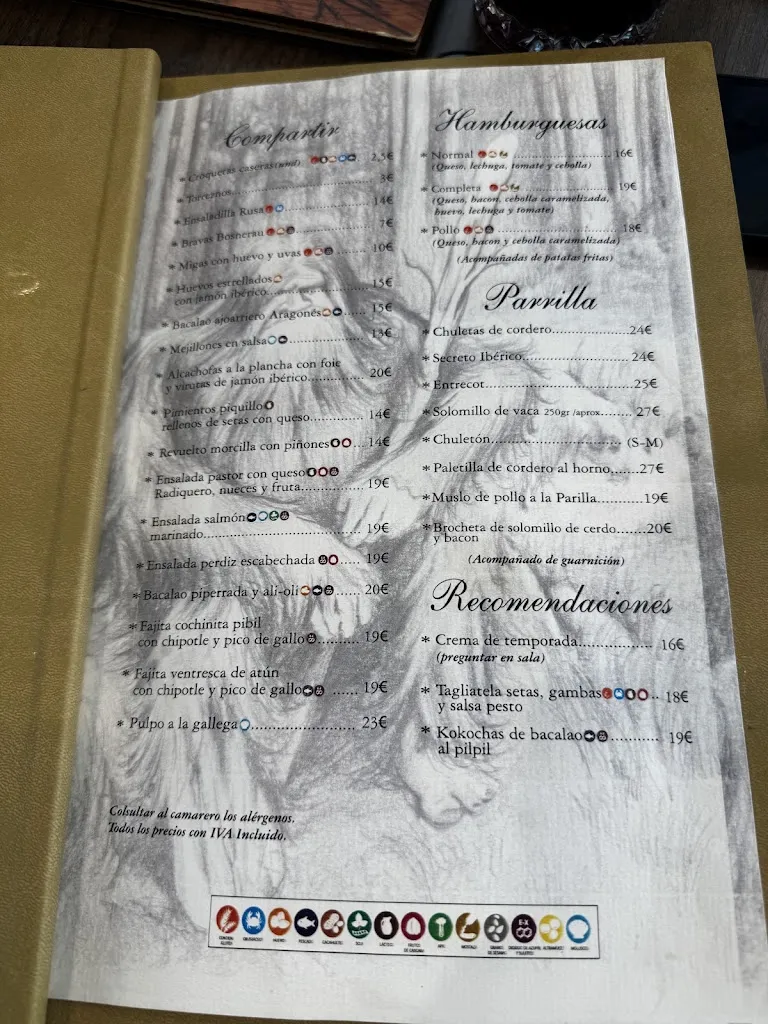 Compartir
* Croquetas caseras(und) ........ 2,5€
* Torreznos........................ 3€
* Ensaladilla Rusa ................ 14€
* Bravas Bosnerau ................ 7€
* Migas con huevo y uvas ........ 10€
* Huevos estrellados
con jamón ibérico................ 15€
* Bacalao ajoarriero Aragonés ..... 15€
* Mejillones en salsa ............. 13€
* Alcachofas a la plancha con foie
y virutas de jamón ibérico............ 20€
* Pimientos piquillo
rellenos de setas con queso............ 14€
* Revuelto morcilla con piñones ... 14€
* Ensalada pastor con queso
Radiquero, nueces y fruta............... 19€
* Ensalada salmón
marinado.................................... 19€
* Ensalada perdiz escabechada ..... 19€
* Bacalao piperrada y ali-oli ...... 20€
* Fajita cochinita pibil
con chipotle y pico de gallo .......... 19€
* Fajita ventresca de atún
con chipotle y pico de gallo ...... 19€
* Pulpo a la gallega ........................ 23€
Colsultar al camarero los alérgenos.
Todos los precios con IVA Incluido.
Hamburguesas
* Normal ............................ 16€
(Queso, lechuga, tomate y cebolla)
* Completa ........................... 19€
(Queso, bacon, cebolla caramelizada,
huevo, lechuga y tomate)
* Pollo ................................ 18€
(Queso, bacon y cebolla caramelizada)
(Acompañadas de patatas fritas)
Parrilla
* Chuletas de cordero..................24€
* Secreto Ibérico......................... 24€
* Entrecot...................................25€
* Solomillo de vaca 250gr /aprox........ 27€
* Chuletón................................ (S-M)
* Paletilla de cordero al horno.......27€
* Muslo de pollo a la Parilla...........19€
* Brocheta de solomillo de cerdo.......20€
y bacon
(Acompañado de guarnición)
Recomendaciones
* Crema de temporada................. 16€
(preguntar en sala)
* Tagliatela setas, gambas .. 18€
y salsa pesto
* Kokochas de bacalao ........... 19€
al pilpil